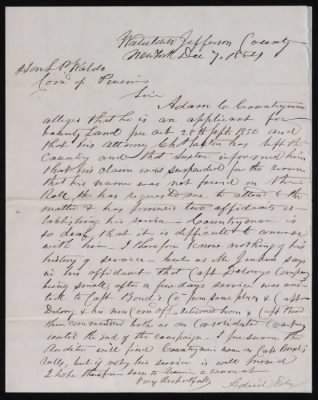 Watertown Jefferson County
New York Dec 7, 1854
Hon L P Waldo
Comr of Pensions
Sir
Adam C Countryman
alleges that he is an applicant for
bounty Land per act 28th Sept 1850 and
that his Attorney Chs Saxton has left the
Country and that Saxton informed him
that his claim was suspended for the reason
that his name was not found on the
Roll, He has requested me to attend to the
matter & has procured two affidavits es-
tablishing his service - Countryman is
so deaf that it is difficult to converse
with him - I therefore know nothing of his
history of service - but as Mr Jenkins says
in his affidavit that Capt Delong's Company
being small, after a few days service was
to Capt Bond's Co from same place & Capt
Delong & his men returned home & Capt Bond
then commanded both as one consolidated company
until the end of the campaign - I presume the
Auditor will find Countryman's name on Capt Bond's
Rolls, but if not, his service is well proved
I hope therefore soon to receive a warrant
Very Respectfully